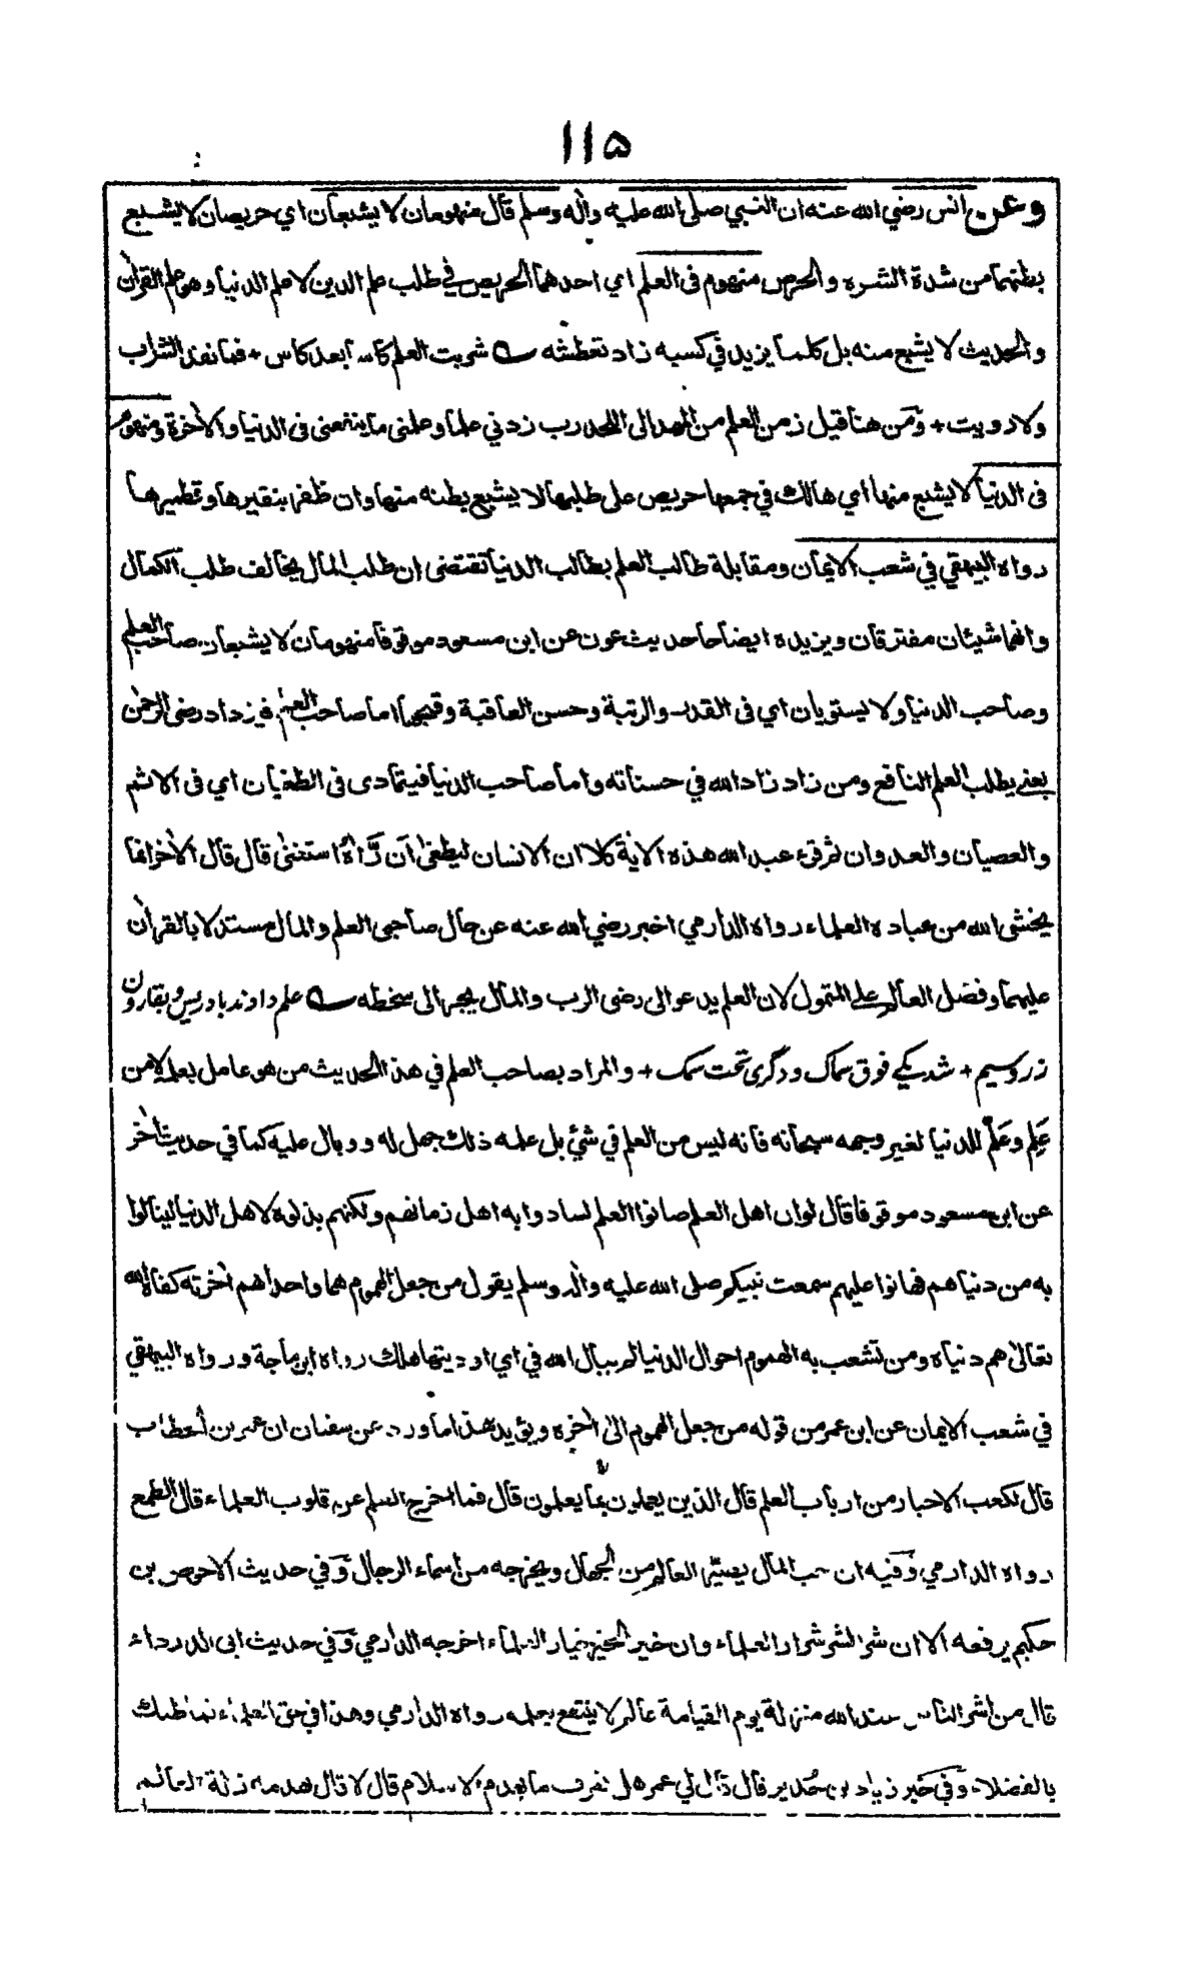 ١١٥
وعن انس رضي الله عنه ان النبي صلى الله عليه وأله وسلم قال منهومان لا يشبعان اي حريصان لا يشبع
بطنهما من شدة الشره والحرص منهوم فى العلم اي احدهما الحريص في طلب علم الدين لا علم الدنيا وهو علم القرأن
والحديث لا يشبع منه بل كلما يزيد في كسبه زاد تعطشه شربت العلم كاسا بعد كاس + فما نفد الشراب
ولا رويت + ومن هنا قيل زمن العلم من المهد الى اللحد رب زدني علما وعلمنى ما ينفعنى فى الدنيا والأخرة ومنهوم
فى الدنيا لا يشبع منها اي هالك في جمعها حريص على طلبها لا يشبع بطنه منها وان ظفر بنقيرها وقطميرها
رواه البيهقي في شعب الايمان ومقابلة طالب العلم بطالب الدنيا تقتضى ان طلب المال يخالف طلب الكمال
وانهما شيئان مفترقان ويزيده ايضاحا حديث عون عن ابن مسعود موقوفا منهومان لا يشبعان صاحب العلم
وصاحب الدنيا ولا يستويان اي فى القدر والرتبة وحسن العاقبة وقبحها اما صاحب العلم فيزداد رضى الرحمن
يعني يطلب العلم النافع ومن زاد زاد الله في حسناته واما صاحب الدنيا فيتمادى فى الطغيان اي فى الاثم
والعصيان والعدوان ثم قرء عبد الله هذه الاية كلا ان الانسان ليطغى ان رّاه استغنى قال قال الأخر انما
يخشى الله من عباده العلماء رواه الدارمي اخبر رضي الله عنه عن حال صاحبى العلم والمال مستدلا بالقرأن
عليهما وفضل العالم على المتمول لان العلم يدعو الى رضى الرب والمال يجر الى سخطه علم دادند بادريس وبقارون
زر وسيم + شد يكے فوق سماك ودگرى تحت سمك + والمراد بصاحب العلم في هذا الحديث من هو عامل بعلمه لا من
عَلِم وعَلَّم للدنيا لغير وجهه سبحانه فانه ليس من العلم في شئ بل علمه ذلك جهل له ووبال عليه كما في حديث أخر
عن ابن مسعود موقوفا قال لو ان اهل العلم صانوا العلم لسادوا به اهل زمانهم ولكنهم بذلوه لاهل الدنيا لينالوا
به من دنياهم فهانوا عليهم سمعت نبيكم صلى الله عليه وأله وسلم يقول من جعل الهموم هما واحدا هم أخرته كفاه الله
تعالى هم دنياه ومن تشعب به الهموم احوال الدنيا لم يبال الله في اي اوديتها هلك رواه ابن ماجة ورواه البيهقي
في شعب الايمان عن ابن عمر من قوله من جعل الهموم الى أخره ويؤيد هذا ما ورد عن سفيان ان عمر بن الخطاب
قال لكعب الاحبار من ارباب العلم قال الذين يعملون بما يعلمون قال فما اخرج العلم عن قلوب العلماء قال الطمع
رواه الدارمي وفيه ان حب المال يصيّر العالم من الجهال ويخرجه من اسماء الرجال وفي حديث الاحوص بن
حكيم يرفعه الا ان شر الشر شرار العلماء وان خير الخير خيار العلماء اخرجه الدارمي وفي حديث ابى الدرداء
قال من اشر الناس عند الله منزلة يوم القيامة عالم لا ينتفع بعلمه رواه الدارمي وهذا في حق العلماء فما ظنك
بالفضلاء وفي خبر زياد بن حدير قال قال لي عمر هل تعرف ما يهدم الاسلام قال لا قال يهدمه زلة العالم